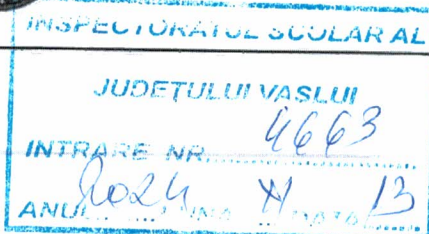 INSPECTORATUL ŞCOLAR AL
JUDEŢULUI VASLUI
INTRARE NR. 4663
ANUL 2024 LUNA XI DATA 13